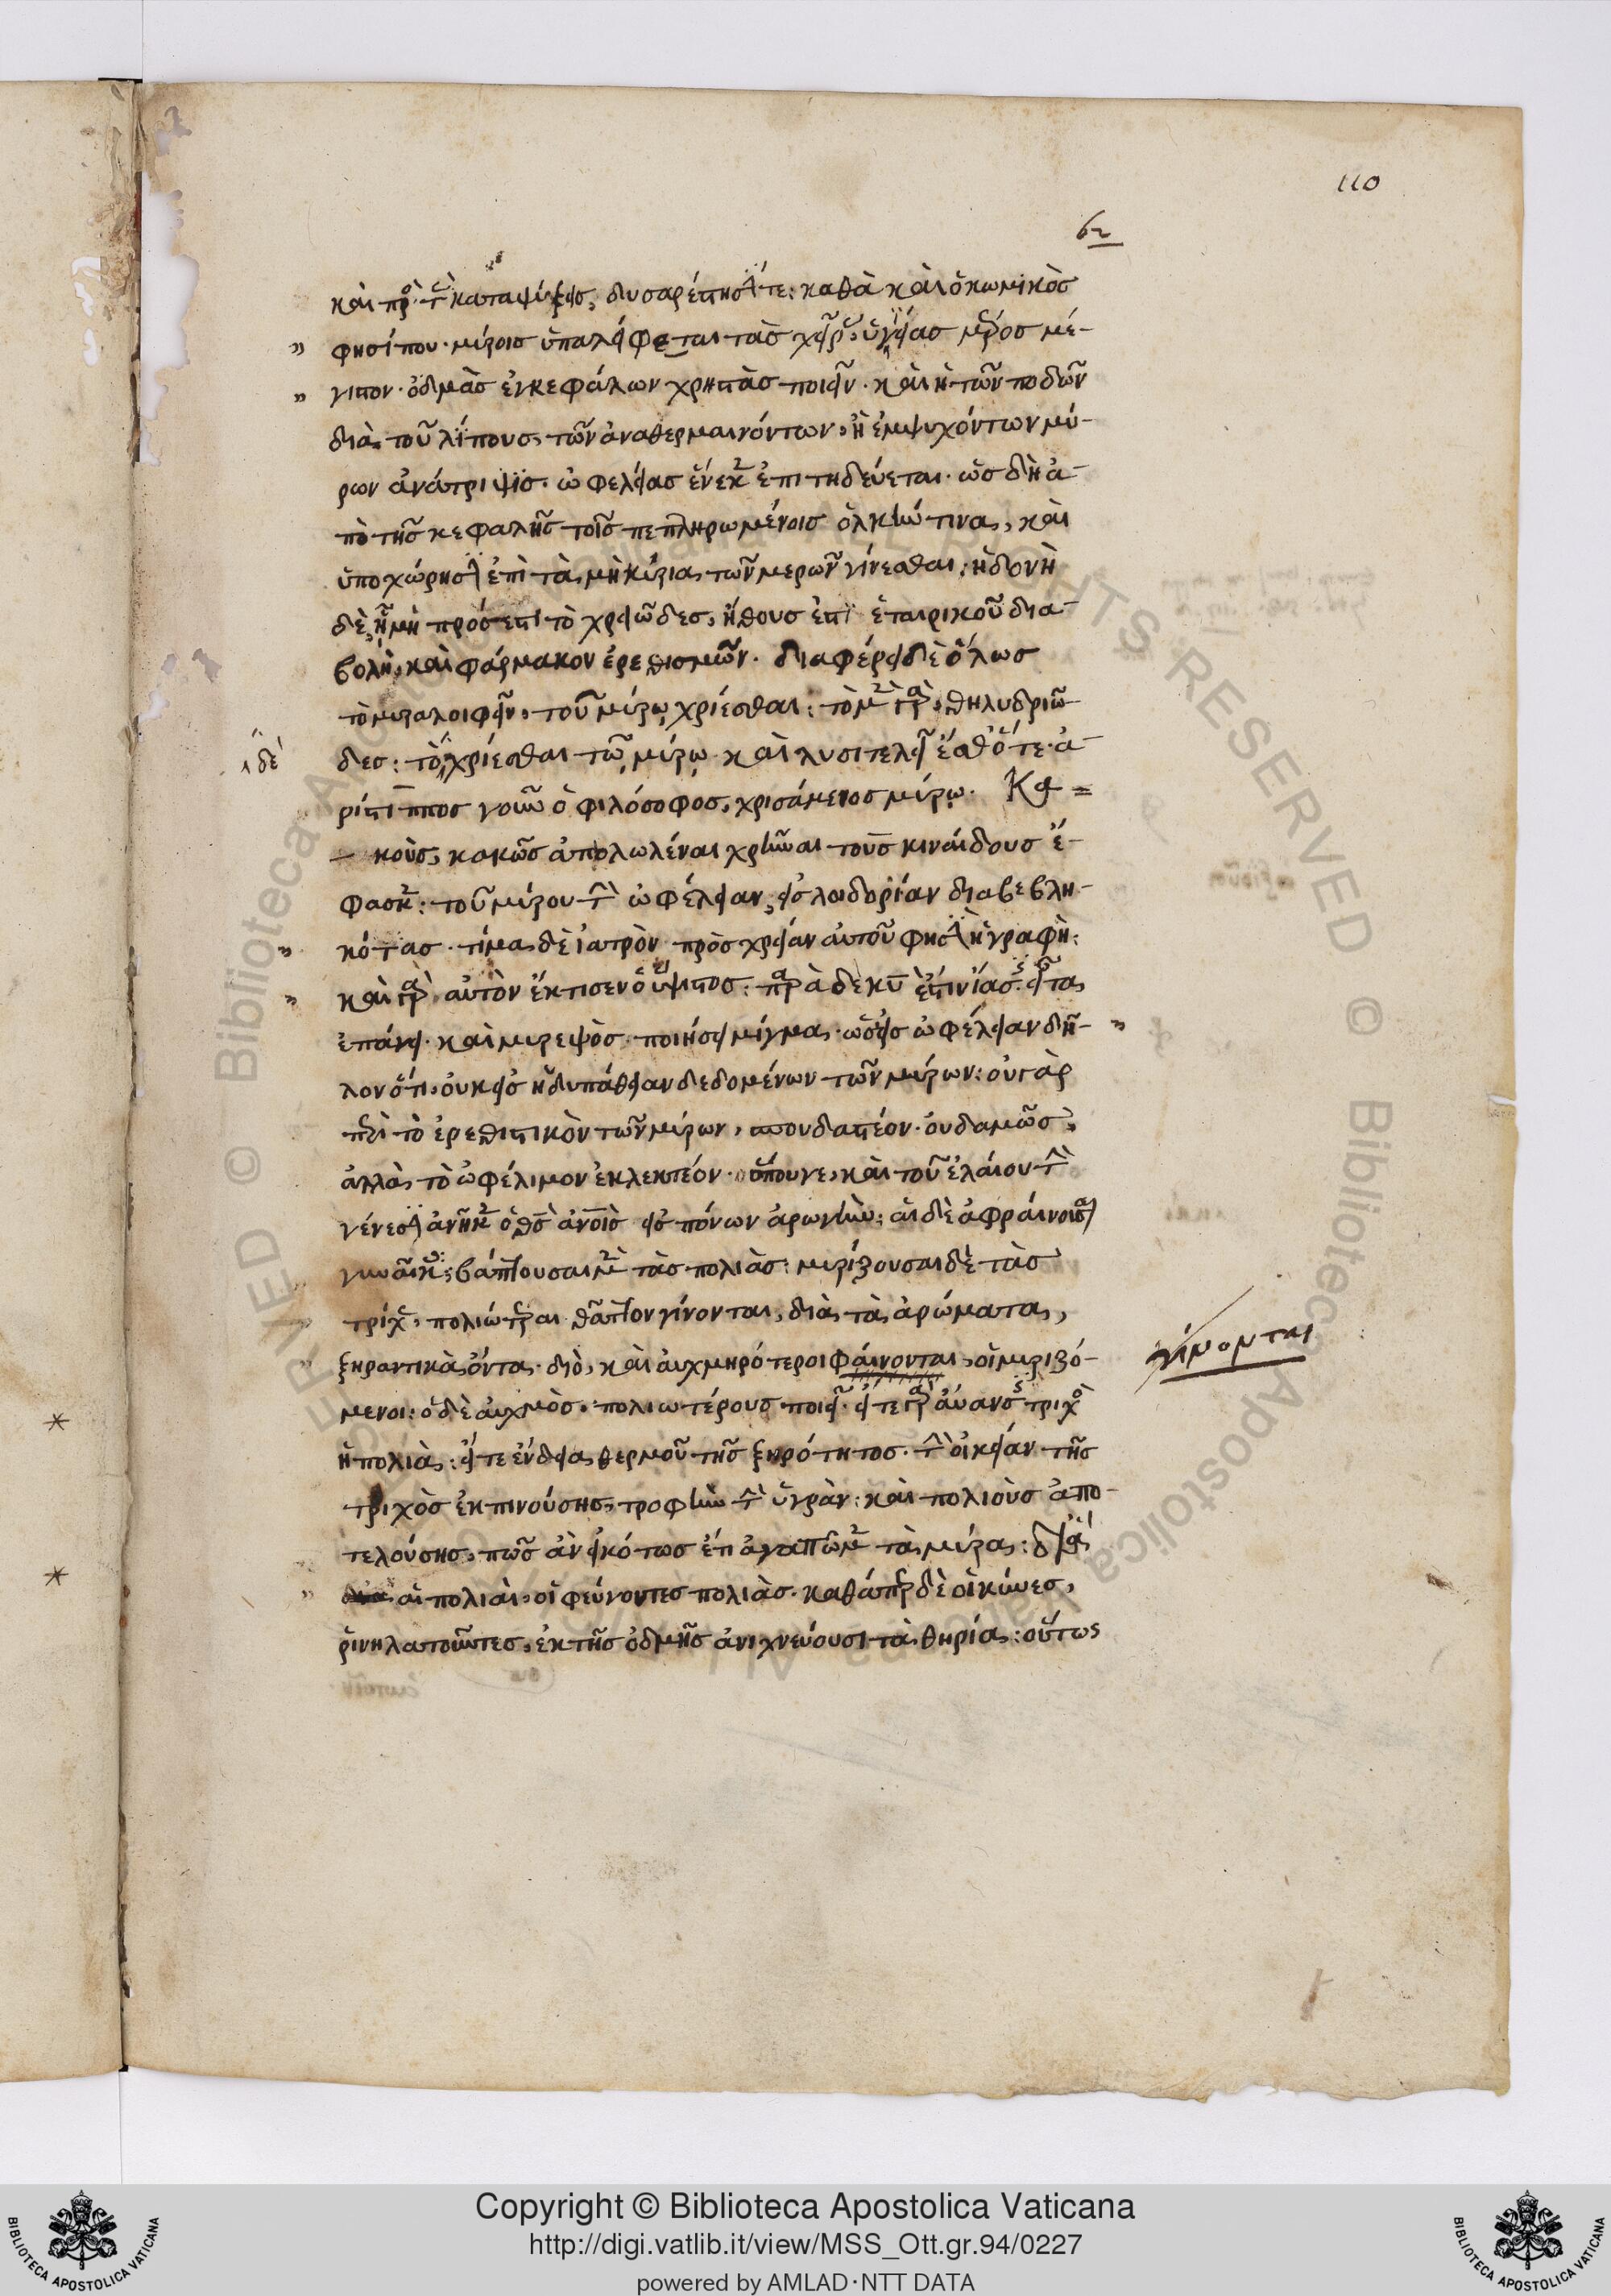 110
62
καὶ πρὸς τὰς καταψύξεις, δυσαρέστησίν τε: καθὰ καὶ ὁ κωμικὸς
φησί που· μύροις ὑπαλείφεται τὰς χεῖρας· ὑγιείας μέρος μέ-
γιστον· ὀδμὰς ἐγκεφάλων χρηστὰς ποιεῖν· καὶ ἡ τῶν ποδῶν
διὰ τοῦ λίπους, τῶν ἀναθερμαινόντων, ἢ ἐμψυχόντων μύ-
ρων ἀνάτριψις· ὠφελείας ἕνεκεν ἐπιτηδεύεται· ὡς δὴ ἀ-
πὸ τῆς κεφαλῆς τοῖς πεπληρωμένοις ὁλκήν τινα, καὶ
ὑποχώρησιν ἐπὶ τὰ μὴ κύρια τῶν μερῶν γίνεσθαι: ἡδονὴ
δὲ, ᾗ μὴ πρόσεστι τὸ χρειῶδες, ἤθους ἐστὶ ἑταιρικοῦ δια-
βολή, καὶ φάρμακον ἐρεθισμῶν. διαφέρει δὲ ὅλως
τὸ μυραλοιφεῖν, τοῦ μύρῳ χρίεσθαι: τὸ μὲν γὰρ, θηλυδριῶ-
ἰδέ
δες: τὸ δὲ χρίεσθαι τῷ μύρῳ καὶ λυσιτελεῖ ἔσθ' ὅτε· ἀ-
ρίστιππος γοῦν ὁ φιλόσοφος, χρισάμενος μύρῳ. Κα =
κοὺς, κακῶς ἀπολωλέναι χρῆναι τοὺς κιναίδους ἔ-
φασκεν: τοῦ μύρου τὴν ὠφέλειαν, εἰς λοιδορίαν διαβεβλη-
κότας· τίμα δὲ ἰατρὸν πρὸς χρείαν αὐτοῦ φησὶν ἡ γραφή:
καὶ γὰρ αὐτὸν ἔκτισεν ὁ ὕψιστος: παρὰ δὲ κυ ἐστὶν ἴασις. εἶτα
ἐπάγει· καὶ μυρεψὸς ποιήσει μίγμα· ὡς εἰς ὠφέλειαν δῆ-
λον ὅτι, οὐκ εἰς ἡδυπάθειαν δεδομένων τῶν μύρων: οὐ γὰρ
περὶ τὸ ἐρεθιστικὸν τῶν μύρων, σπουδαστέον οὐδαμῶς,
ἀλλὰ τὸ ὠφέλιμον ἐκλεκτέον· ὅπου γε, καὶ τοῦ ἐλαίου τὴν
γένεσιν ἀνῆκεν ὁ θς ἀνοις εἰς πόνων ἀρωγήν: αἱ δὲ ἀφραίνουσαι
γυναῖκες, βάπτουσαι μὲν τὰς πολιὰς: μυρίζουσαι δὲ τὰς
τρίχας, πολιώτεραι θᾶττον γίνονται, διὰ τὰ ἀρώματα,
ξηραντικὰ ὄντα· διὸ, καὶ αὐχμηρότεροι φαίνονται, οἱ μυριζό-
γίνονται
μενοι: ὁ δὲ αὐχμὸς, πολιωτέρους ποιεῖ· εἴτε γὰρ αὔανσις τριχῶν
ἡ πολιὰ: εἴτε ἔνδεια θερμοῦ τῆς ξηρότητος· τὴν οἰκείαν τῆς
τριχὸς ἐκπινούσης τροφὴν τὴν ὑγρὰν: καὶ πολιοὺς ἀπο-
τελούσης, πῶς ἂν εἰκότως ἔτι ἀγαπῶμεν τὰ μύρα: δι' ἃ
αἱ πολιαὶ, οἱ φεύγοντες πολιὰς· καθάπερ δὲ οἱ κύνες,
ῥινηλατοῦντες, ἐκ τῆς ὀδμῆς ἀνιχνεύουσι τὰ θηρία: οὕτως
Copyright © Biblioteca Apostolica Vaticana
http://digi.vatlib.it/view/MSS_Ott.gr.94/0227
powered by AMLAD·NTT DATA